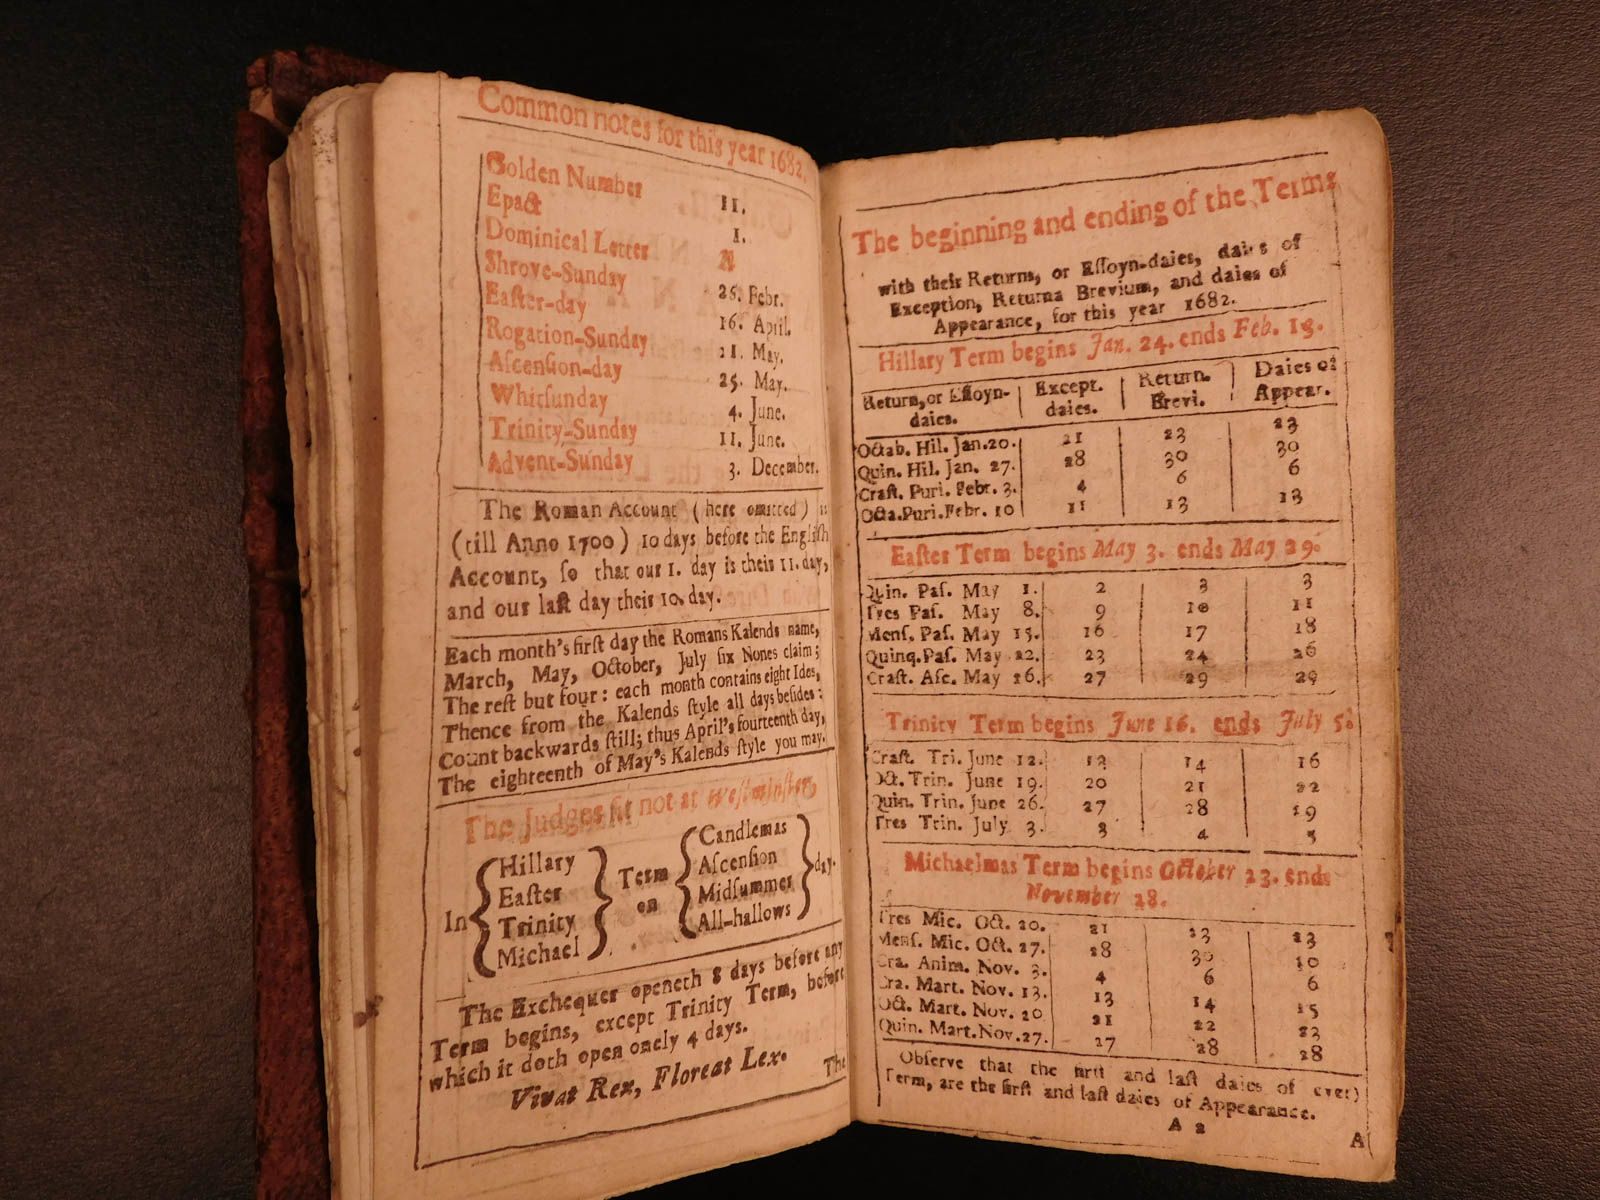 Common notes for this year 1682.
Golden Number 11.
Epact 1.
Dominical Letter A
Shrove-Sunday 26. Febr.
Eaſter-day 16. April.
Rogation-Sunday 21. May.
Aſcenſion-day 25. May.
Whitſunday 4. June.
Trinity-Sunday 11. June.
Advent-Sunday 3. December.
The Roman Account (here omitted) is
(till Anno 1700) 10 days before the Engliſh
Account, ſo that our 1. day is their 11. day,
and our laſt day their 10. day.
Each month's firſt day the Romans Kalends name,
March, May, October, July ſix Nones claim;
The reſt but four: each month contains eight Ides,
Thence from the Kalends ſtyle all days beſides:
Count backwards ſtill; thus April's fourteenth day,
The eighteenth of May's Kalends ſtyle you may.
The Judges ſit not at Weſtminſter,
In { Hillary Eaſter Trinity Michael } Term on { Candlemas Aſcenſion Midſummer All-hallows } day.
The Exchequer openeth 8 days before any
Term begins, except Trinity Term, before
which it doth open onely 4 days.
Vivat Rex, Floreat Lex.
The
The beginning and ending of the Terms
with their Returns, or Eſſoyn-daies, daies of
Exception, Returna Brevium, and daies of
Appearance, for this year 1682.
Hillary Term begins Jan. 24. ends Feb. 13.
Return, or Eſſoyn-daies. | Except. daies. | Return. Brevi. | Daies of Appear.
Octab. Hil. Jan. 20. 21 23 23
Quin. Hil. Jan. 27. 28 30 30
Craſt. Puri. Febr. 3. 4 6 6
Octa. Puri. Febr. 10 11 13 13
Eaſter Term begins May 3. ends May 29.
Quin. Paſ. May 1. 2 3 3
Tres Paſ. May 8. 9 10 11
Menſ. Paſ. May 15. 16 17 18
Quinq. Paſ. May 22. 23 24 26
Craſt. Aſc. May 26. 27 29 29
Trinity Term begins June 16. ends July 5.
Craſt. Tri. June 12. 13 14 16
Oct. Trin. June 19. 20 21 22
Quin. Trin. June 26. 27 28 29
Tres Trin. July 3. 3 4 5
Michaelmas Term begins October 23. ends
November 28.
Tres Mic. Oct. 20. 21 23 23
Menſ. Mic. Oct. 27. 28 30 30
Cra. Anim. Nov. 3. 4 6 6
Cra. Mart. Nov. 13. 13 14 15
Oct. Mart. Nov. 20 21 22 23
Quin. Mart. Nov. 27. 27 28 28
Obſerve that the firſt and laſt daies of every
Term, are the firſt and laſt daies of Appearance.
A 2
A